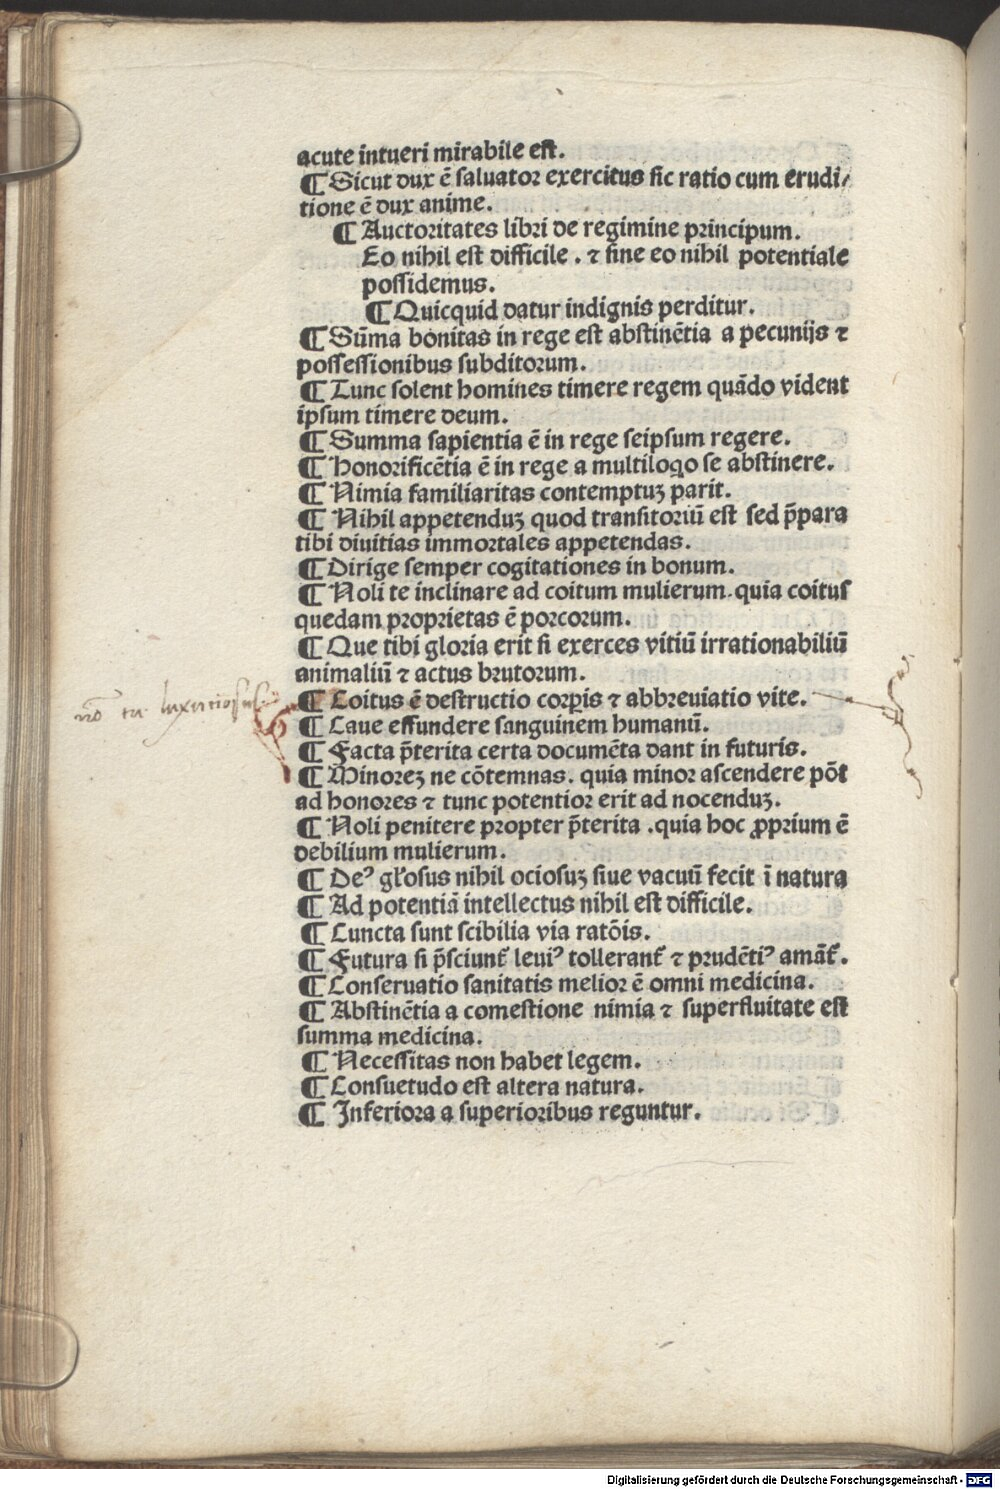 acute intueri mirabile est.
¶ Sicut dux ē saluator exercitus sic ratio cum erudi/
tione ē dux anime.
¶ Auctoritates libri de regimine principum.
Eo nihil est difficile . ⁊ sine eo nihil potentiale
possidemus.
¶ Quicquid datur indignis perditur.
¶ Sūma bonitas in rege est abstinētia a pecunijs ⁊
possessionibus subditorum.
¶ Tunc solent homines timere regem quādo vident
ipsum timere deum.
¶ Summa sapientia ē in rege seipsum regere.
¶ Honorificētia ē in rege a multiloqo se abstinere.
¶ Nimia familiaritas contemptuꝫ parit.
¶ Nihil appetenduꝫ quod transitoriū est sed p̄para
tibi diuitias immortales appetendas.
¶ Dirige semper cogitationes in bonum.
¶ Noli te inclinare ad coitum mulierum. quia coitus
quedam proprietas ē porcorum.
¶ Que tibi gloria erit si exerces vitiū irrationabiliū
animaliū ⁊ actus brutorum.
nō tu
¶ Coitus ē destructio corꝑis ⁊ abbreuiatio vite.
¶ Caue effundere sanguinem humanū.
¶ Facta p̄terita certa documēta dant in futuris.
¶ Minoreꝫ ne cōtemnas. quia minor ascendere pōt
ad honores ⁊ tunc potentior erit ad nocenduꝫ.
¶ Noli penitere propter p̄terita .quia hoc ꝓprium ē
debilium mulierum.
¶ Deꝰ gl'osus nihil ociosuꝫ siue vacuū fecit ī natura
¶ Ad potentiā intellectus nihil est difficile.
¶ Cuncta sunt scibilia via ratōis.
¶ Futura si p̄sciunt᷑ leuiꝰ tollerant᷑ ⁊ prudētiꝰ amāt᷑.
¶ Conseruatio sanitatis melior ē omni medicina.
¶ Abstinētia a comestione nimia ⁊ superfluitate est
summa medicina.
¶ Necessitas non habet legem.
¶ Consuetudo est altera natura.
¶ Inferiora a superioribus reguntur.
Digitalisierung gefördert durch die Deutsche Forschungsgemeinschaft - DFG